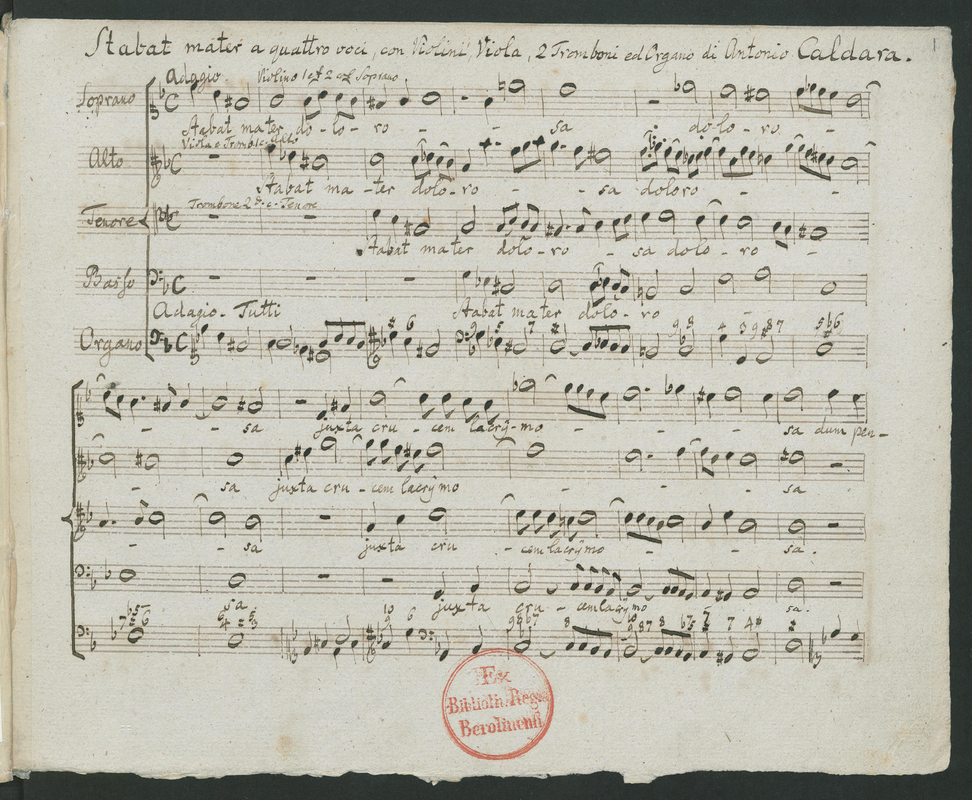 Stabat mater a quattro voci, con Violini, Viola, 2 Tromboni ed Organo di Antonio Caldara.
1
Adagio Violino 1 et 2 col Soprano.
Soprano
Stabat mater do - lo - ro - - - sa do - lo - ro - -
Viola e Tromb. 1
Alto
Stabat ma - ter dolo - ro - - - sa doloro - - -
Trombone 2do e Tenore
Tenore
Stabat mater dolo - ro - sa dolo - ro -
Basso
Adagio - Tutti Stabat mater dolo - ro
6 9 5 7 9 8 4 3 9 8 7 5 6
Organo
- sa juxta cru - cem lacrymo - - - sa dum pen -
- sa juxta cru - cem lacrymo - - sa
- - sa juxta cru - cem lacrymo - - sa.
sa juxta cru - cem lacrymo sa.
Ex
Biblioth. Regia
Berolinensi